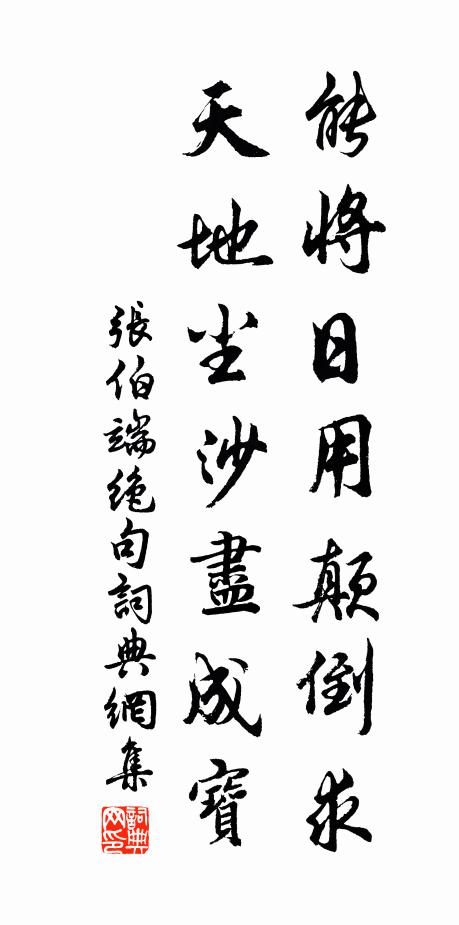 能將日用顛倒求
天地尘沙盡成寶
張伯端絶句詞典網集
詞典网印